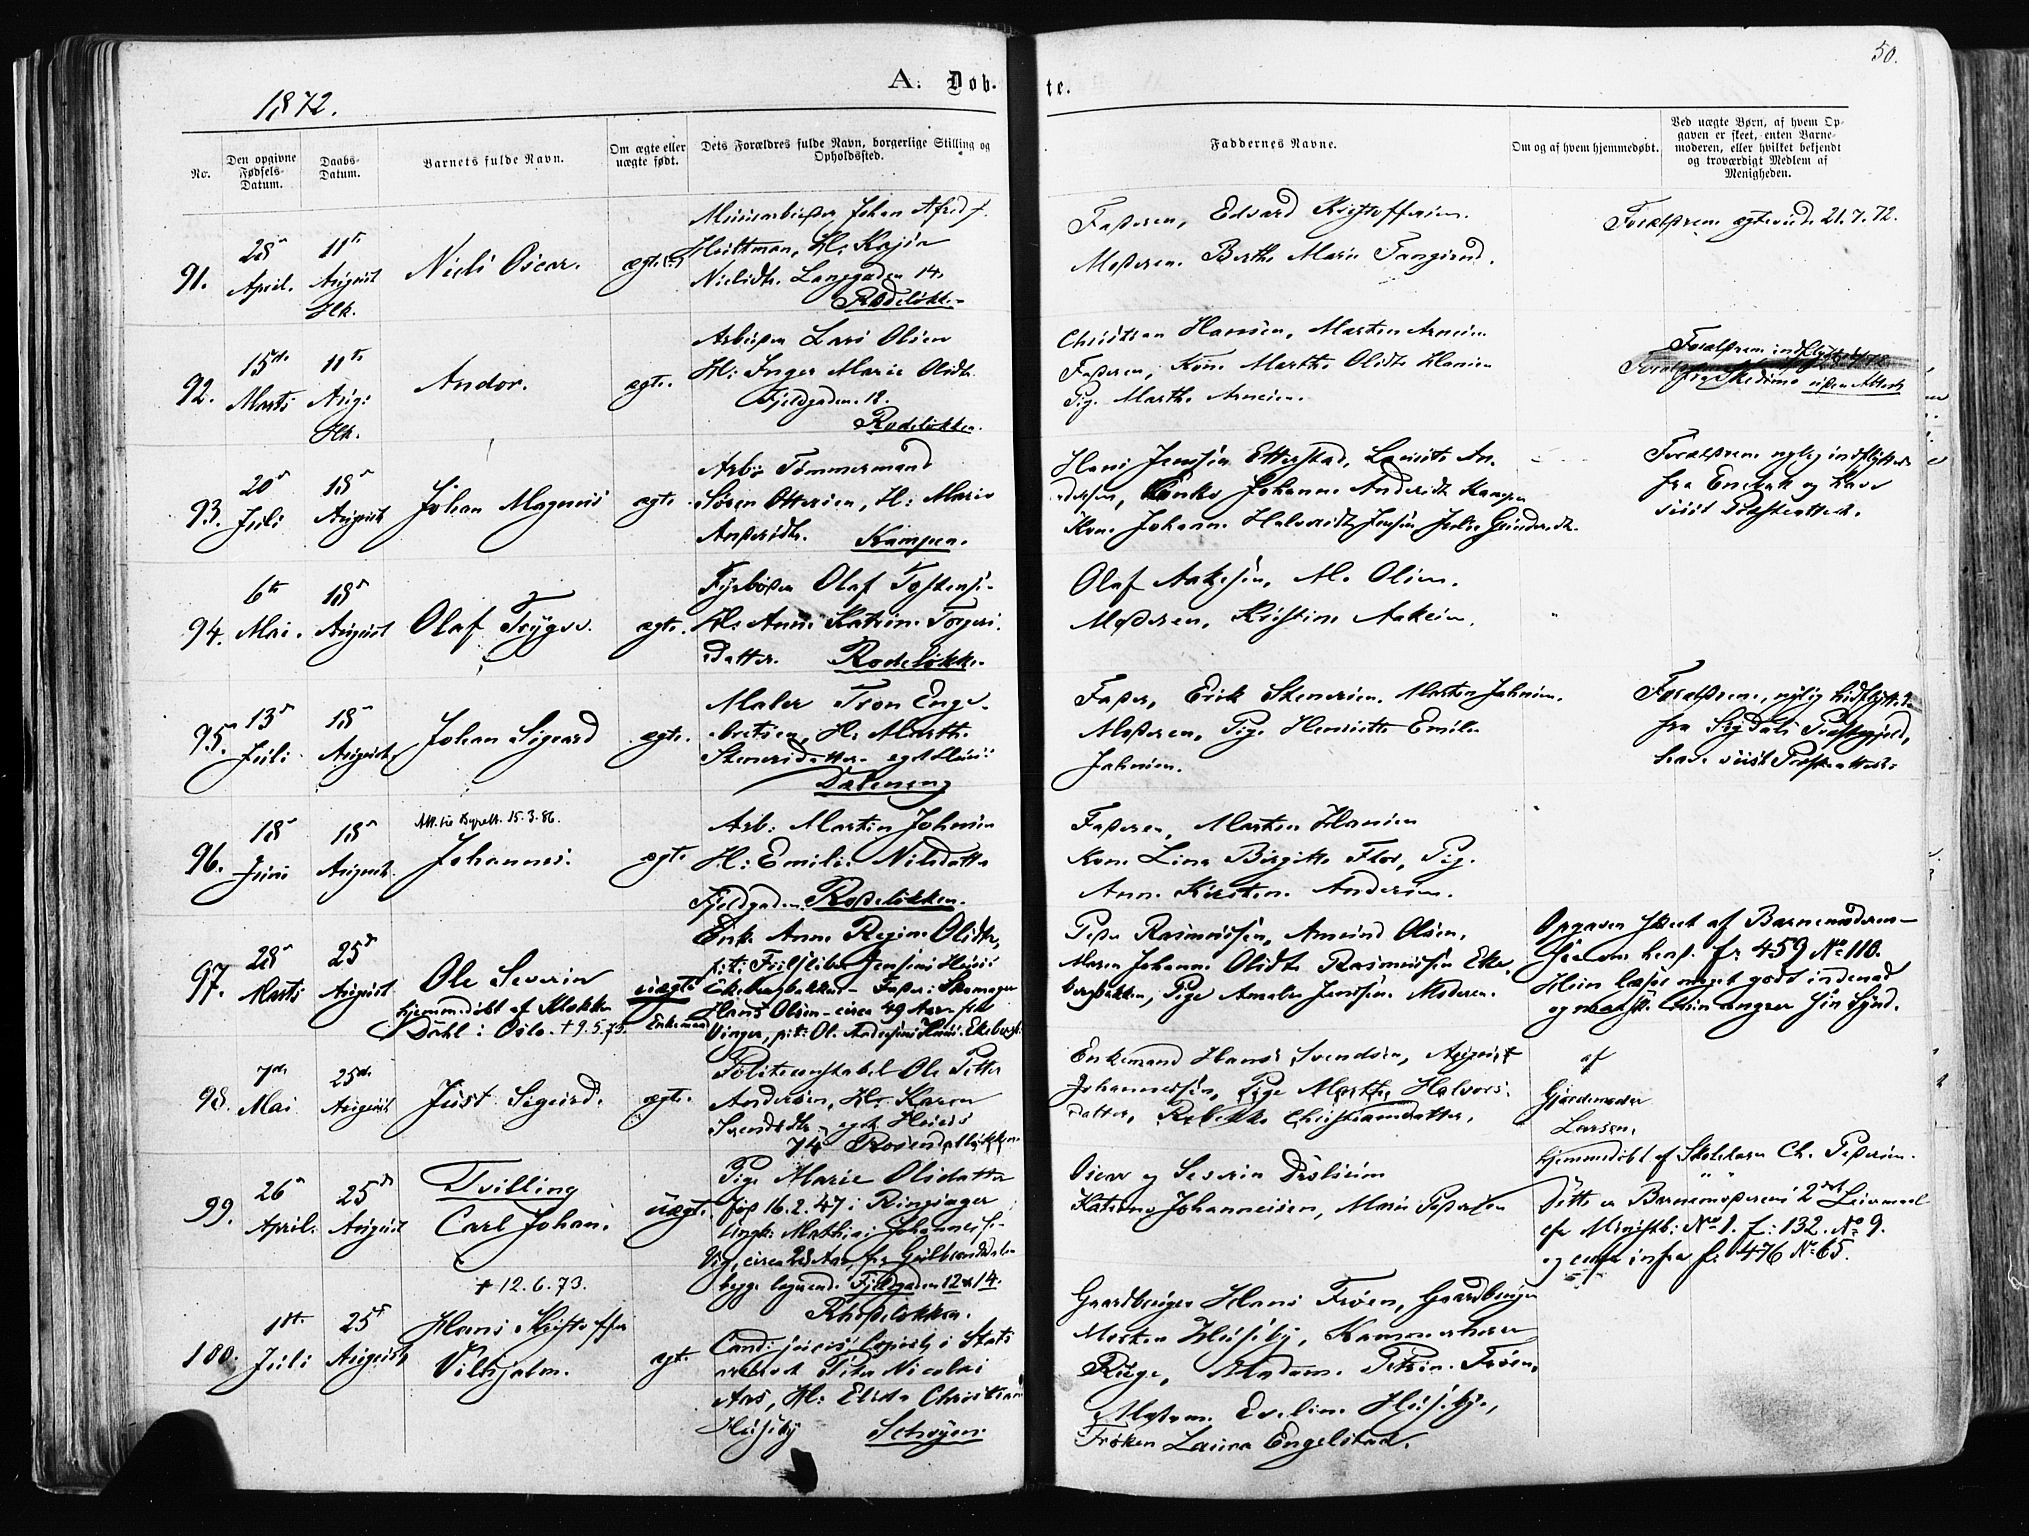 50.
1872.
A. Døb-
te.
No.
Den opgivne
Fødsels-
Datum.
Daabs-
Datum.
Barnets fulde Navn.
Om ægte eller
uægte født.
Dets Forældres fulde Navn, borgerlige Stilling og
Opholdssted.
Faddernes Navne.
Om og af hvem hjemmedøbt.
Ved uægte Børn, af hvem Op-
gaven er skeet, enten Barne-
moderen, eller hvilket bekjendt
og troværdigt Medlem af
Menigheden.
91.
28
April.
11te
August
Niels Oscar.
Johan
Langgaden 14
Rodeløkken
Faderen, Edvard Kristoffersen.
Moderen. Berthe Marie
Forældrene ægteviede 21.7.72.
92.
15de
Marts
11te
Aug:
Andor.
ægte.
Arbeider Lars Olsen
H: Inger Marie Olsdtr
Fjeldgaden 12.
Rodeløkken.
Christian Hansen, Martin Arnesen
Faderen, Kone Marthe Olsdtr Hansen
Pige Marthe Arnesen.
93.
20
Juli
18
August
Johan Magnus
ægte.
Arb: Tømmermand
Søren Ottersen, H: Marie
Andersdtr. Kampen.
Hans Jensen Etterstad, Lauritz An-
dersen, Enke Johanne Andersdtr Kampen
Kone Johanne Halvorsdtr Jensen,
Forældrene nylig indflyttede
fra Enebak og have
viist Præsteattest.
94.
6te
Mai.
18
August
Olaf Trygve.
ægte.
Fyrbøder Olaf Tostensen
H: Anne Katrine Torgers-
datter. Rodeløkken
Olaf Aakesen, M. Olsen.
Moderen, Kristine Aakesen.
95.
13
Juli
18
August
Johan Sigurd
ægte.
Maler Tron Enge-
bretsen, H: Marthe
Stenersdatter eget Huus
Dæleneng
Fader, Erik Stenersen, Martin Johnsen.
Moderen, Pige Henriette Emilie
Johnsen.
Forældrene, nylig hidflyttede
fra Sigdals Præstegjeld,
have viist Præsteattest
96.
18
Juni
18
August.
15.3.86.
Johannes.
ægte
Arb: Martin Johnsen
H: Emilie Nilsdatter
Fjeldgaden. Rodeløkken.
Faderen, Martin Hansen
Kone Lina Birgitte Flor, Pige
Anne Kirstine Andersen.
97.
28
Marts
25
August
Ole Severin
hjemmedøbt af Klokker
Dahl i Oslo. † 9.5.73.
uægte
Enkemand
Enke Anne Regine Olsdtr,
Ekebergbakken - Fader: Skomager
Hans Olsen - circa 49 Aar fra
Vinger, Ole Andersens Huus. Ekeberg
Peder Rasmussen, Amund Olsen,
Maren Johanne Olsdtr Rasmussen Eke-
bergbakken, Pige Amalie Jensen. Moderen.
Opgaven skeet af Barnemoderen -
f: 459 No 110.
Hun læser meget godt indenad
og hun angrer sin Synd.
98.
7de
Mai
25de
August
Just Sigurd.
ægte.
Politiconstabel Ole Petter
Andersen, H: Karen
Svendsdtr. eget Huus
74 Rosendalløkken
Enkemand Hans Svendsen, August
Johannessen, Pige Marthe Halvors-
datter, Rebekka Christiansdatter.
af
Gjordemoder
Larsen.
99.
26
April.
25
August
Tvilling
Carl Johan.
† 12.6.73.
uægte.
Pige Marie Olsdatter
fød 16.2.47 i Ringsager
Ungk: Mathias Johannes
begge logerende Fjeldgaden 12 14.
Rhodeløkken.
Oscar og Severin
Katrine Johannesen, Marie Pedersen
hjemmedøbt af Skolelærer Ch. Pedersen.
Dette er Barnemoderens 2det Leiermaal
efr Ministb: No 1. f: 132. No 9.
og infra f: 476 No 65.
100.
1ste
Juli
25
August
Hans Kristoffer
Vilhjelm.
ægte.
Cand: juris, i Stats-
Peter Nicolai
Aas, H: Elida Christiane
Huseby Schøyen.
Gaardbruger Hans Frøen, Gaardbruger
Morten Huseby, Kammerherre
Ruge, Madame Petrine Frøen,
Madame Eveline Huseby,
Frøken Laura Engelstad.